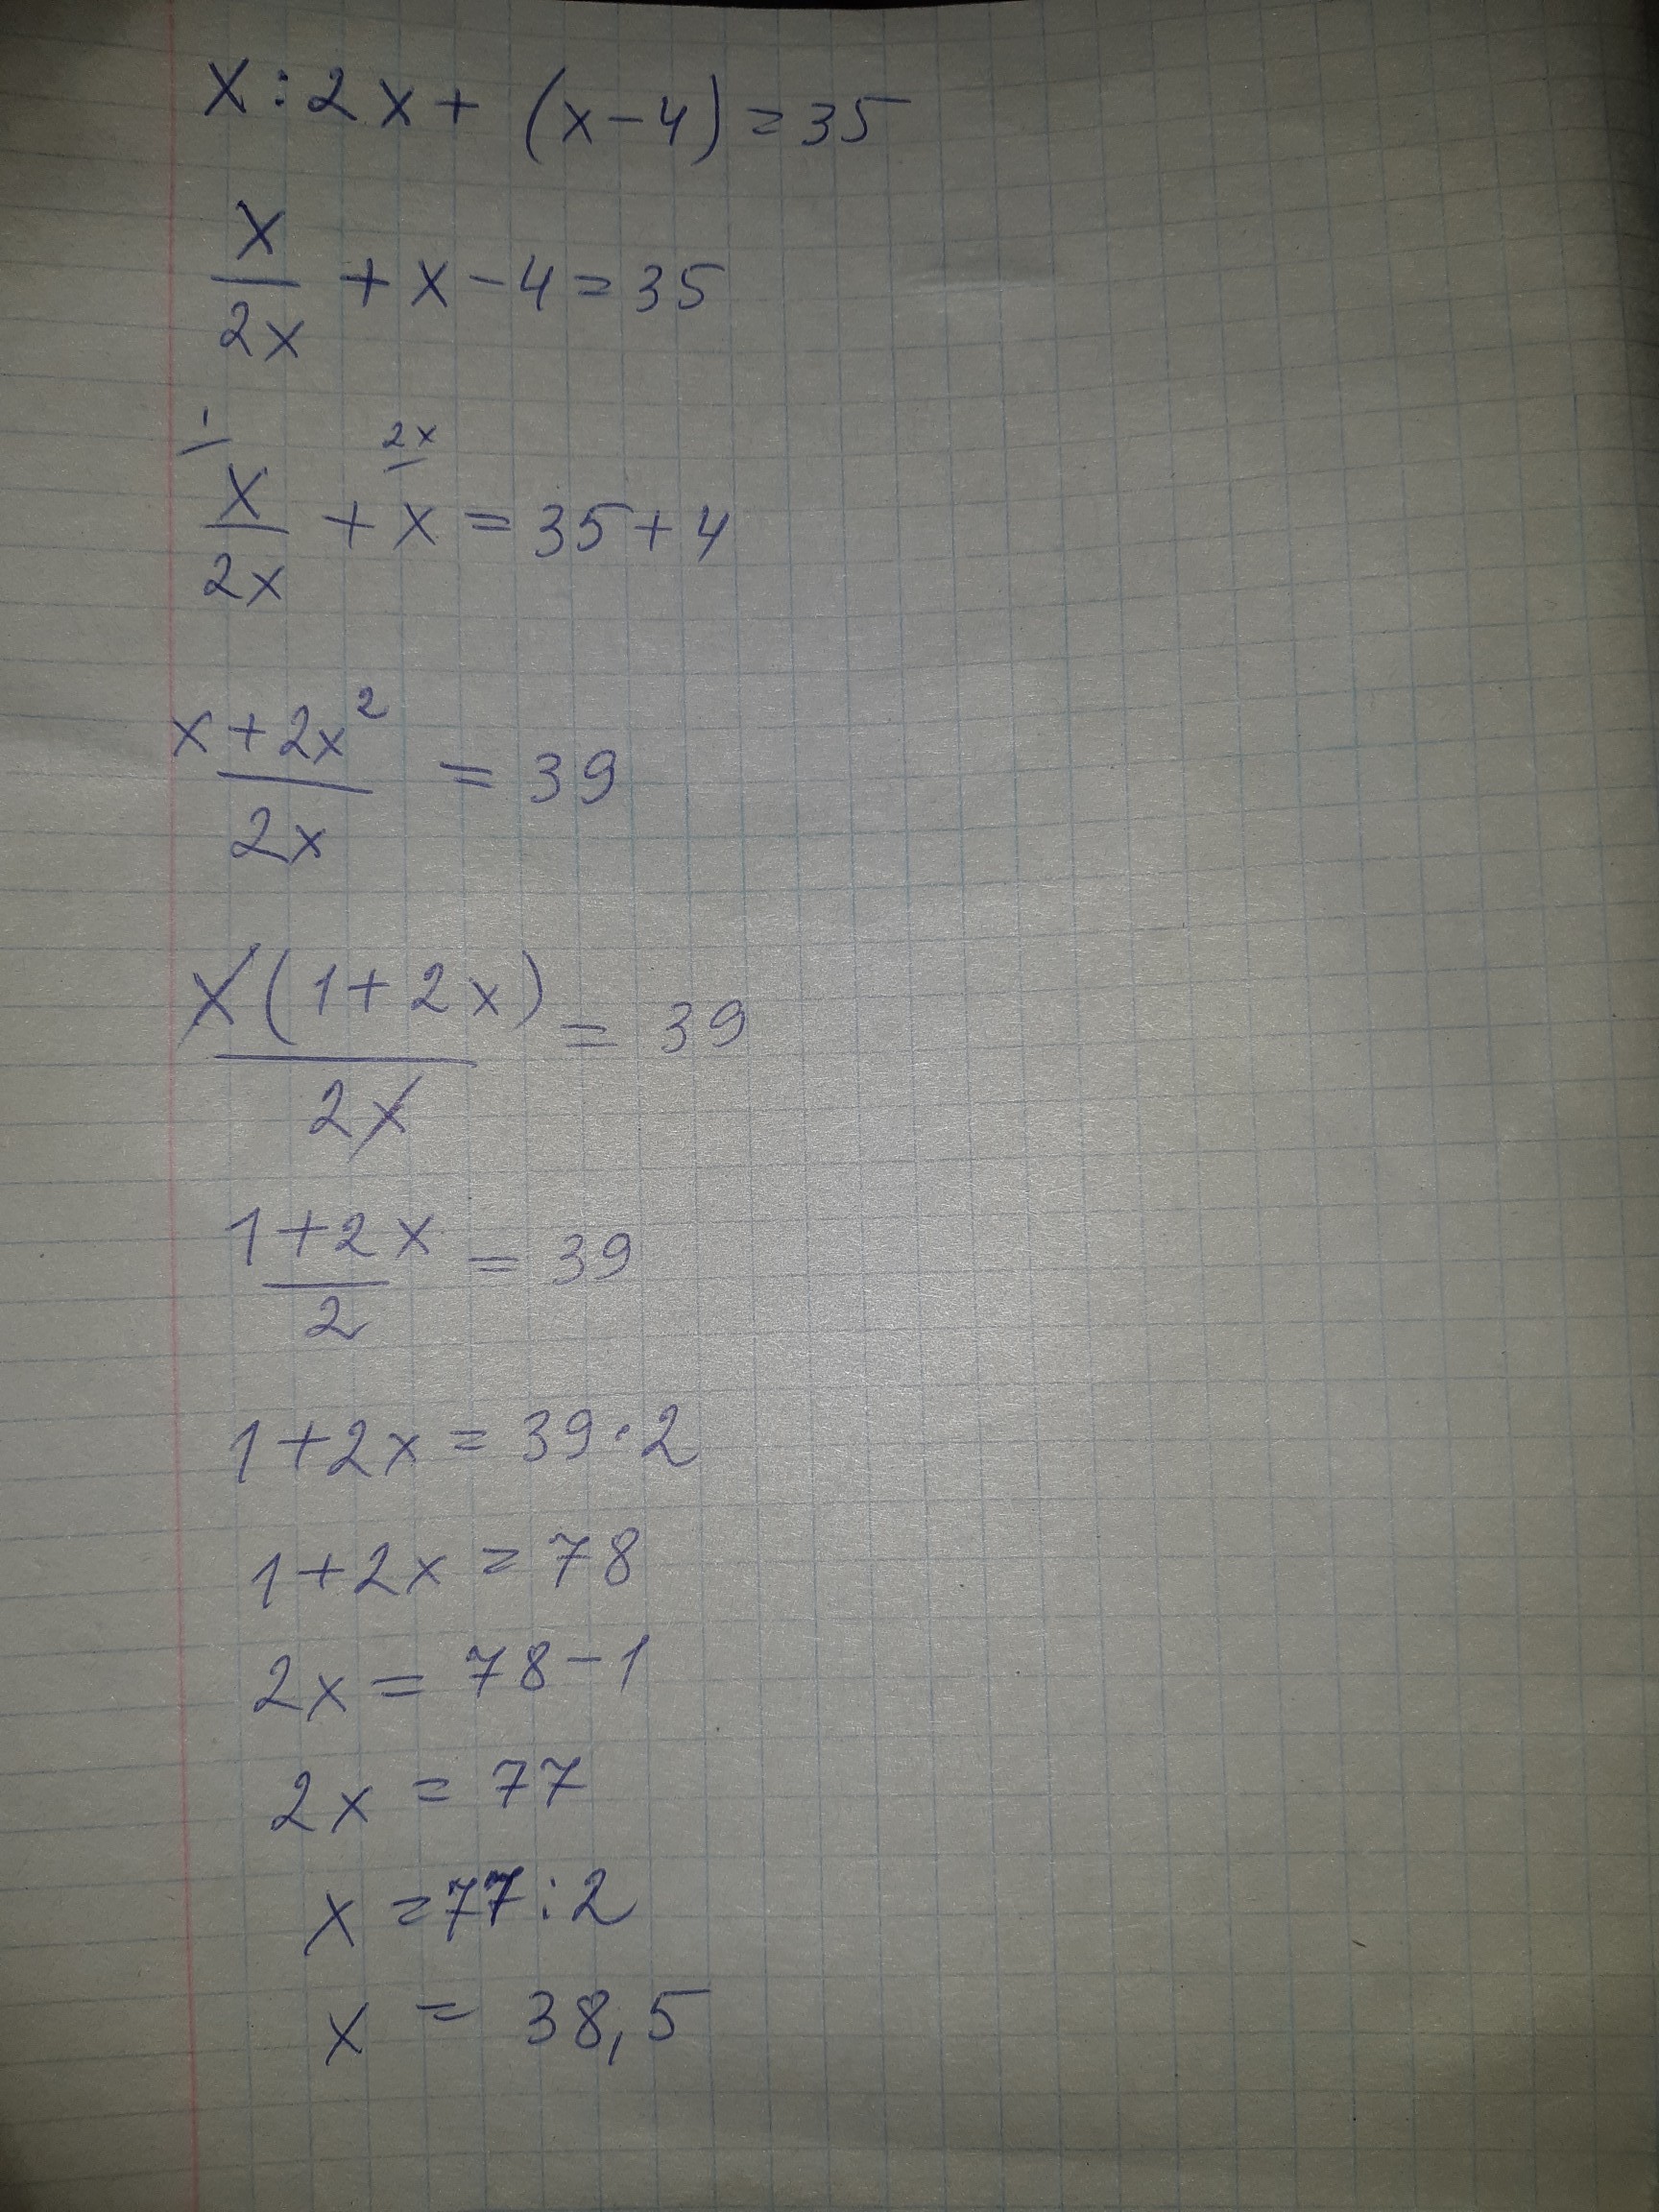 x:2x+(x-4)=35
x/2x + x-4=35
1/ 2x/
x/2x + x=35+4
x+2x²/2x = 39
x(1+2x)/2x = 39
1+2x/2 = 39
1+2x=39·2
1+2x=78
2x=78-1
2x=77
x=77:2
x=38,5